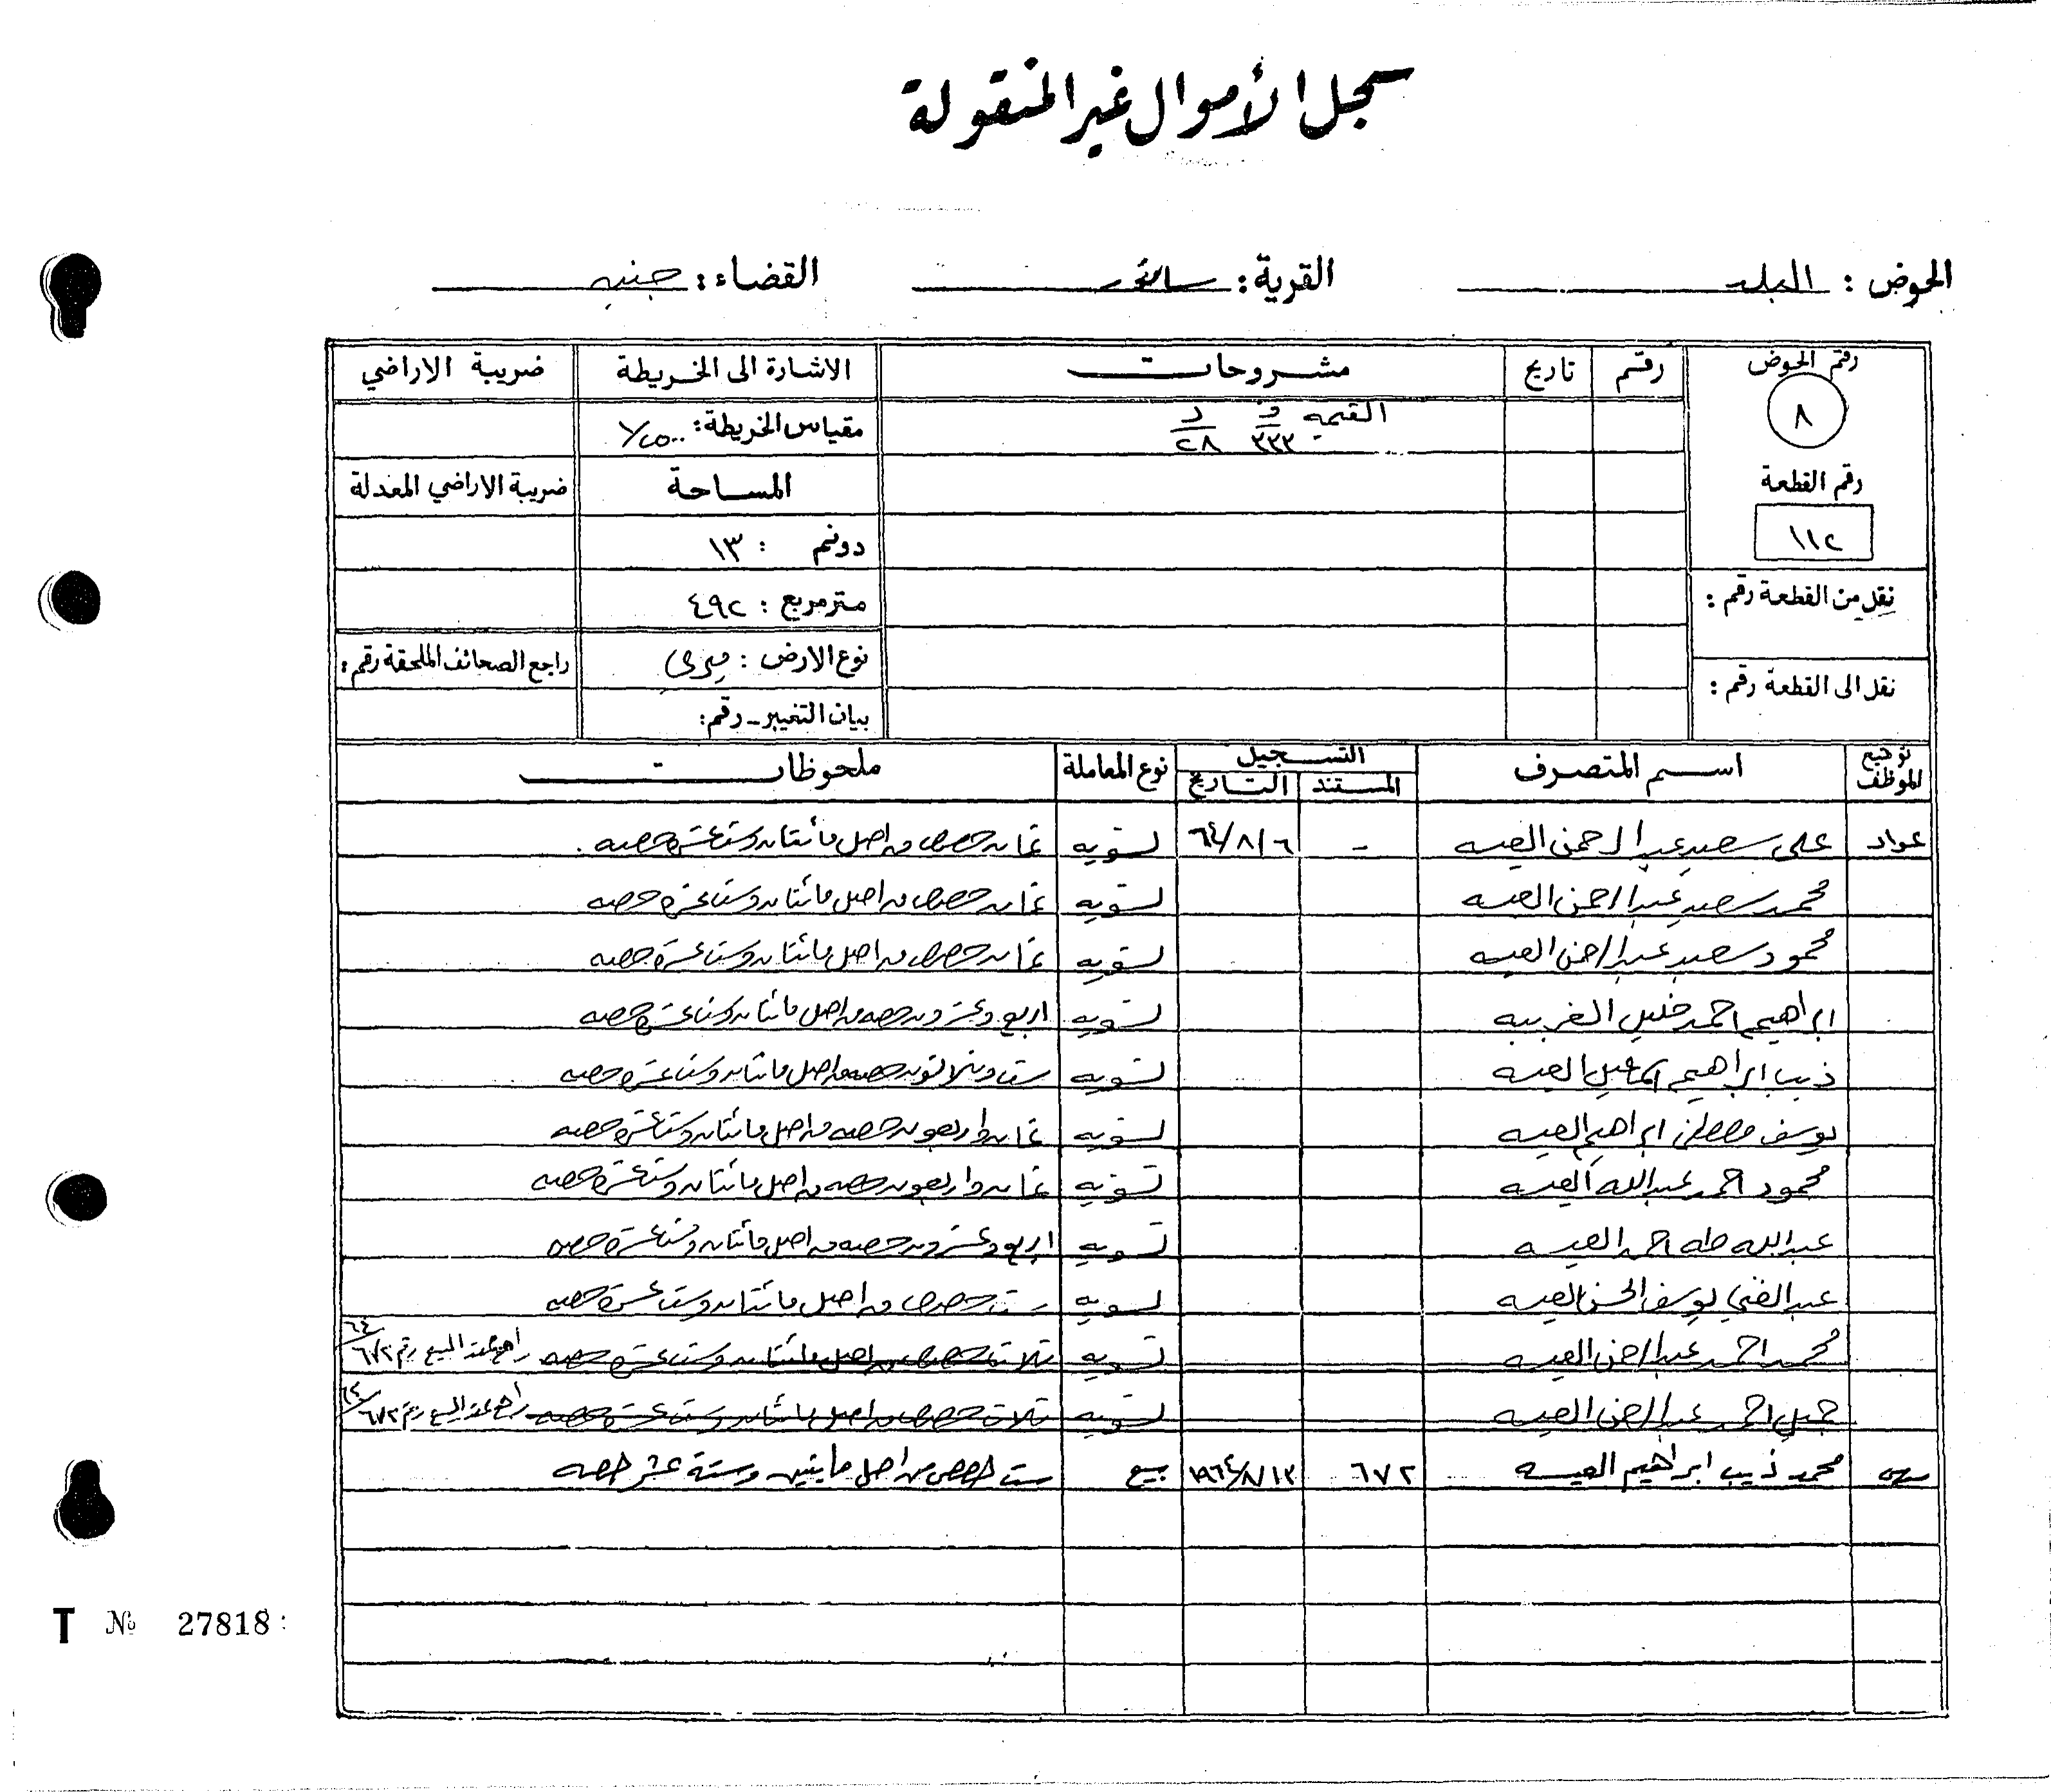 سجل الأموال غير المنقولة
الحوض : البلد القرية : سانور القضاء : جنين
رقم الحوض رقم تاريخ مشروحات الاشارة الى الخريطة ضريبة الاراضي
٨ القيمه ف ٣٣٣ د ٢٨ مقياس الخريطة : ١/٢٥٠٠
رقم القطعة المساحة ضريبة الاراضي المعدلة
١١٢ دونم : ١٣
نقل من القطعة رقم : متر مربع : ٤٩٢
نوع الارض : ميري راجع الصحائف الملحقة رقم :
نقل الى القطعة رقم : بيان التغيير - رقم :
توقيع الموظف اسم المتصرف التسجيل نوع المعاملة ملحوظات
المستند التاريخ
عواد علي سعيد عبد الرحمن العيسه - ٦٤/٨/٦ تسويه ثمانه حصص من اصل مائتان وست عشرة حصه .
محمد سعيد عبد الرحمن العيسه تسويه ثمانه حصص من اصل مائتان وست عشرة حصه
محمود سعيد عبد الرحمن العيسه تسويه ثمانه حصص من اصل مائتان وست عشرة حصه
ابراهيم احمد خليل تسويه اربع وعشرون حصه من اصل مائتان وست عشرة حصه
ذيب ابراهيم اسماعيل العيسه تسويه ست وثلاثون حصه من اصل مائتان وست عشرة حصه
يوسف مصطفى ابراهيم العيسه تسويه ثمان واربعون حصه من اصل مائتان وست عشرة حصه
محمود احمد عبد الله العيسه تسويه ثمان واربعون حصه من اصل مائتان وست عشرة حصه
عبد الله طه احمد العيسه تسويه اربع وعشرون حصه من اصل مائتان وست عشرة حصه
عبد الغني يوسف الحسن العيسه تسويه ست حصص من اصل مائتان وست عشرة حصه
محمد احمد عبد الرحمن العيسه تسويه ثلاث حصص من اصل مائتان وست عشرة حصه راجع عقد البيع رقم ٦٧٢/٦٤
جميل احمد عبد الرحمن العيسه تسويه ثلاث حصص من اصل مائتان وست عشرة حصه راجع عقد البيع رقم ٦٧٢/٦٤
محمد ذيب ابراهيم العيسه ٦٧٢ ١٩٦٤/٨/١٣ بيع ست حصص من اصل مايتين وستة عشر حصه
T № 27818